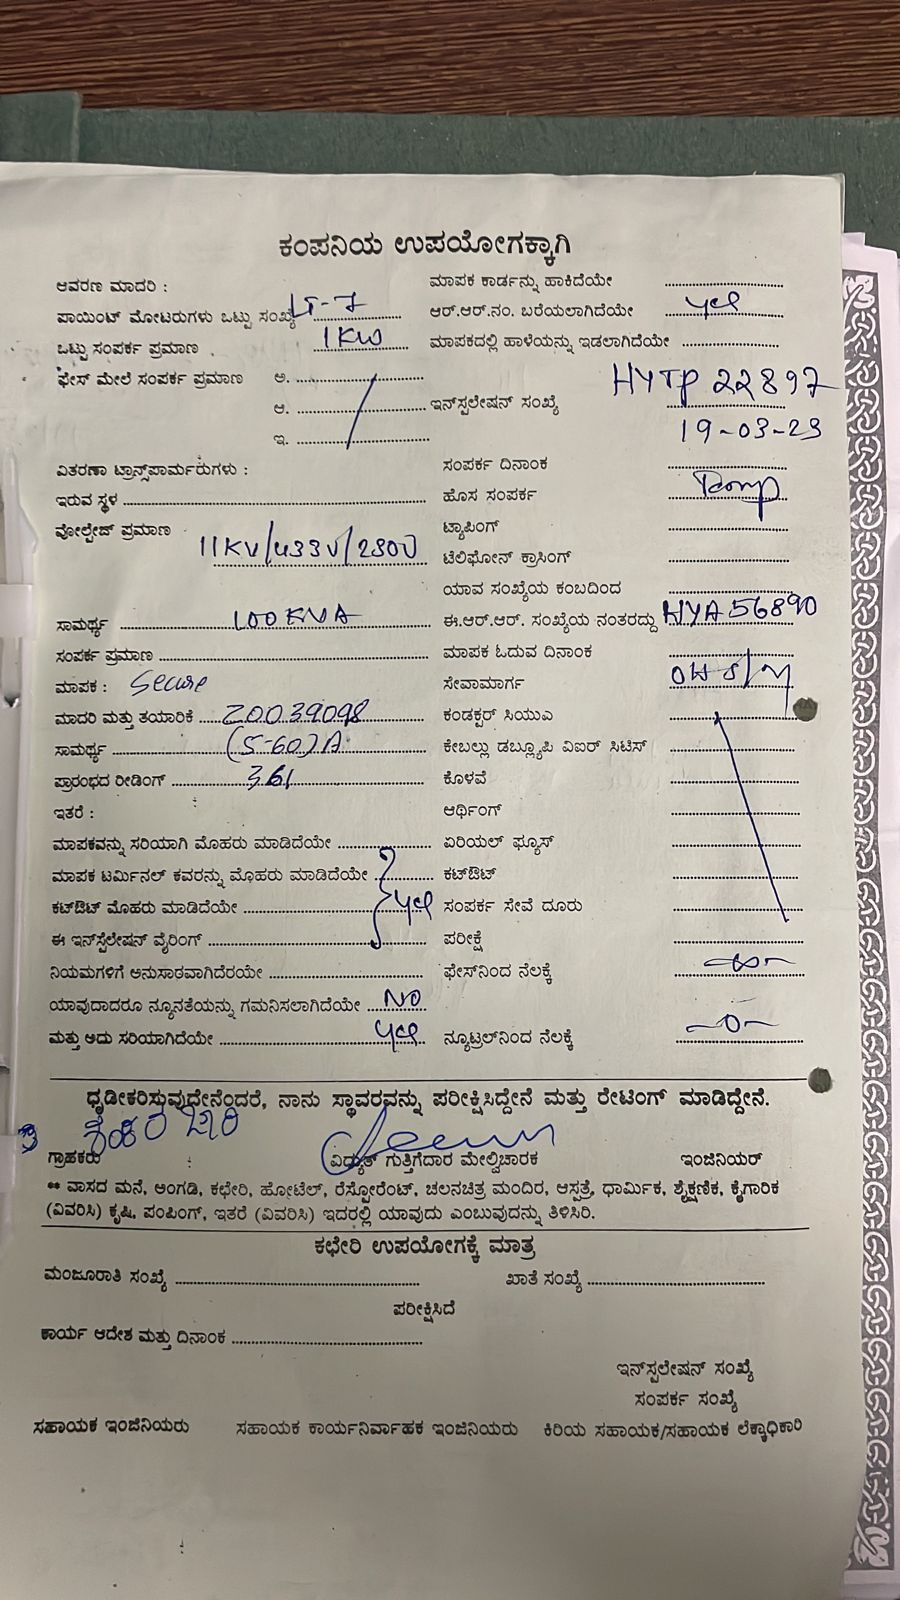 ಕಂಪನಿಯ ಉಪಯೋಗಕ್ಕಾಗಿ
ಆವರಣ ಮಾದರಿ : ಮಾಪಕ ಕಾರ್ಡನ್ನು ಹಾಕಿದೆಯೇ ..........
ಪಾಯಿಂಟ್ ಮೋಟರುಗಳು ಒಟ್ಟು ಸಂಖ್ಯೆ LT-7 ಆರ್.ಆರ್.ನಂ. ಬರೆಯಲಾಗಿದೆಯೇ yes
ಒಟ್ಟು ಸಂಪರ್ಕ ಪ್ರಮಾಣ 1KW ಮಾಪಕದಲ್ಲಿ ಹಾಳೆಯನ್ನು ಇಡಲಾಗಿದೆಯೇ ..........
ಫೇಸ್ ಮೇಲೆ ಸಂಪರ್ಕ ಪ್ರಮಾಣ ಅ. ..........
ಆ. .......... ಇನ್‌ಸ್ಟಲೇಷನ್ ಸಂಖ್ಯೆ HYTP 22897
ಇ. .......... 19-03-23
ವಿತರಣಾ ಟ್ರಾನ್ಸ್‌ಪಾರ್ಮರುಗಳು : ಸಂಪರ್ಕ ದಿನಾಂಕ ..........
ಇರುವ ಸ್ಥಳ .......... ಹೊಸ ಸಂಪರ್ಕ
ವೋಲ್ಟೇಜ್ ಪ್ರಮಾಣ 11KV/433V/230V ಟ್ಯಾಪಿಂಗ್ ..........
ಟೆಲಿಫೋನ್ ಕ್ರಾಸಿಂಗ್ ..........
ಯಾವ ಸಂಖ್ಯೆಯ ಕಂಬದಿಂದ ..........
ಸಾಮರ್ಥ್ಯ 100KVA ಈ.ಆರ್.ಆರ್. ಸಂಖ್ಯೆಯ ನಂತರದ್ದು HYA 56890
ಸಂಪರ್ಕ ಪ್ರಮಾಣ .......... ಮಾಪಕ ಓದುವ ದಿನಾಂಕ ..........
ಮಾಪಕ : Secure ಸೇವಾಮಾರ್ಗ
ಮಾದರಿ ಮತ್ತು ತಯಾರಿಕೆ Z0039098 ಕಂಡಕ್ಟರ್ ಸಿಯುಎ ..........
ಸಾಮರ್ಥ್ಯ (5-60)A ಕೇಬಲ್ಲು ಡಬ್ಲ್ಯೂಪಿ ವಿಐರ್ ಸಿಟಿಸ್ ..........
ಪ್ರಾರಂಭದ ರೀಡಿಂಗ್ 361 ಕೊಳವೆ ..........
ಇತರೆ : ಆರ್ಥಿಂಗ್ ..........
ಮಾಪಕವನ್ನು ಸರಿಯಾಗಿ ಮೊಹರು ಮಾಡಿದೆಯೇ .......... ಏರಿಯಲ್ ಫ್ಯೂಸ್ ..........
ಮಾಪಕ ಟರ್ಮಿನಲ್ ಕವರನ್ನು ಮೊಹರು ಮಾಡಿದೆಯೇ .......... ಕಟ್‌ಔಟ್ ..........
ಕಟ್‌ಔಟ್ ಮೊಹರು ಮಾಡಿದೆಯೇ yes ಸಂಪರ್ಕ ಸೇವೆ ದೂರು ..........
ಈ ಇನ್‌ಸ್ಟೆಲೇಷನ್ ವೈರಿಂಗ್ .......... ಪರೀಕ್ಷೆ ..........
ನಿಯಮಗಳಿಗೆ ಅನುಸಾರವಾಗಿದೆರಯೇ .......... ಫೇಸ್‌ನಿಂದ ನೆಲಕ್ಕೆ -∞-
ಯಾವುದಾದರೂ ನ್ಯೂನತೆಯನ್ನು ಗಮನಿಸಲಾಗಿದೆಯೇ NO
ಮತ್ತು ಅದು ಸರಿಯಾಗಿದೆಯೇ yes ನ್ಯೂಟ್ರಲ್‌ನಿಂದ ನೆಲಕ್ಕೆ -0-
ಧೃಡೀಕರಿಸುವುದೇನೆಂದರೆ, ನಾನು ಸ್ಥಾವರವನ್ನು ಪರೀಕ್ಷಿಸಿದ್ದೇನೆ ಮತ್ತು ರೇಟಿಂಗ್ ಮಾಡಿದ್ದೇನೆ.
ಗ್ರಾಹಕರು ವಿದ್ಯುತ್ ಗುತ್ತಿಗೆದಾರ ಮೇಲ್ವಿಚಾರಕ ಇಂಜಿನಿಯರ್
** ವಾಸದ ಮನೆ, ಅಂಗಡಿ, ಕಛೇರಿ, ಹೋಟೆಲ್, ರೆಸ್ಟೋರೆಂಟ್, ಚಲನಚಿತ್ರ ಮಂದಿರ, ಆಸ್ಪತ್ರೆ, ಧಾರ್ಮಿಕ, ಶೈಕ್ಷಣಿಕ, ಕೈಗಾರಿಕ
(ವಿವರಿಸಿ) ಕೃಷಿ, ಪಂಪಿಂಗ್, ಇತರೆ (ವಿವರಿಸಿ) ಇದರಲ್ಲಿ ಯಾವುದು ಎಂಬುವುದನ್ನು ತಿಳಿಸಿರಿ.
ಕಛೇರಿ ಉಪಯೋಗಕ್ಕೆ ಮಾತ್ರ
ಮಂಜೂರಾತಿ ಸಂಖ್ಯೆ .......... ಖಾತೆ ಸಂಖ್ಯೆ ..........
ಪರೀಕ್ಷಿಸಿದೆ
ಕಾರ್ಯ ಆದೇಶ ಮತ್ತು ದಿನಾಂಕ ..........
ಇನ್‌ಸ್ಟಲೇಷನ್ ಸಂಖ್ಯೆ
ಸಂಪರ್ಕ ಸಂಖ್ಯೆ
ಸಹಾಯಕ ಇಂಜಿನಿಯರು ಸಹಾಯಕ ಕಾರ್ಯನಿರ್ವಾಹಕ ಇಂಜಿನಿಯರು ಕಿರಿಯ ಸಹಾಯಕ/ಸಹಾಯಕ ಲೆಕ್ಕಾಧಿಕಾರಿ